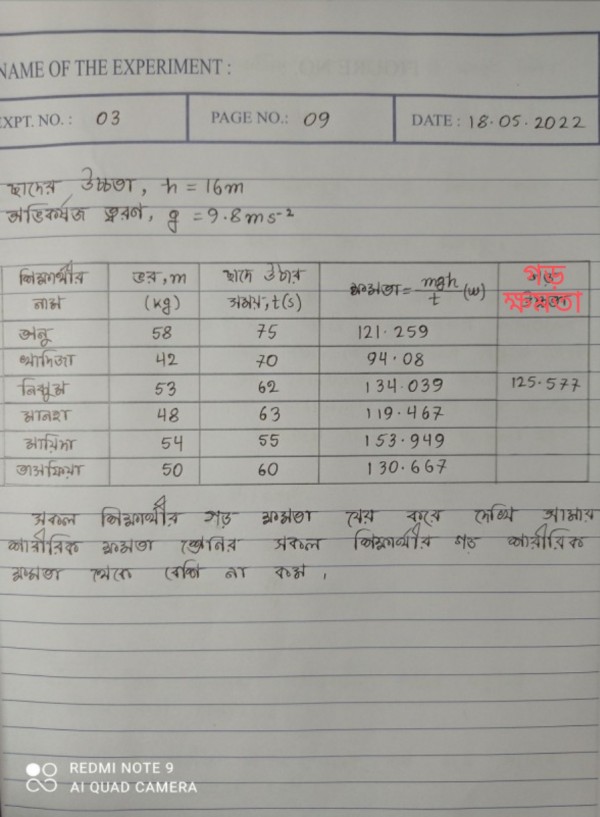 NAME OF THE EXPERIMENT :
EXPT. NO. : 03 PAGE NO.: 09 DATE : 18.05.2022
ছাদের উচ্চতা, h = 16m
অভিকর্ষজ ত্বরণ, g = 9.8ms⁻²
শিক্ষার্থীর নাম ভর, m (kg) ছাদে উঠার সময়, t(s) ক্ষমতা = mgh/t (w) গড় ক্ষমতা
অনু 58 75 121.259
খাদিজা 42 70 94.08
নিঝুম 53 62 134.039 125.577
48 63 119.467
54 55 153.949
50 60 130.667
সকল শিক্ষার্থীর গড় ক্ষমতা বের করে দেখি আমার
শারীরিক ক্ষমতা শ্রেনির সকল শিক্ষার্থীর গড় শারীরিক
ক্ষমতা থেকে বেশি না কম ,
REDMI NOTE 9
AI QUAD CAMERA